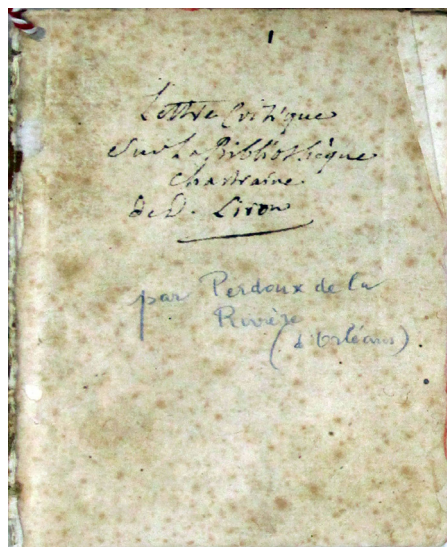 1
Lettre Critique
Sur La Bibliothèque
Chartraine
de D. Liron
par Perdoux de la
Rivière
(d'Orléans)